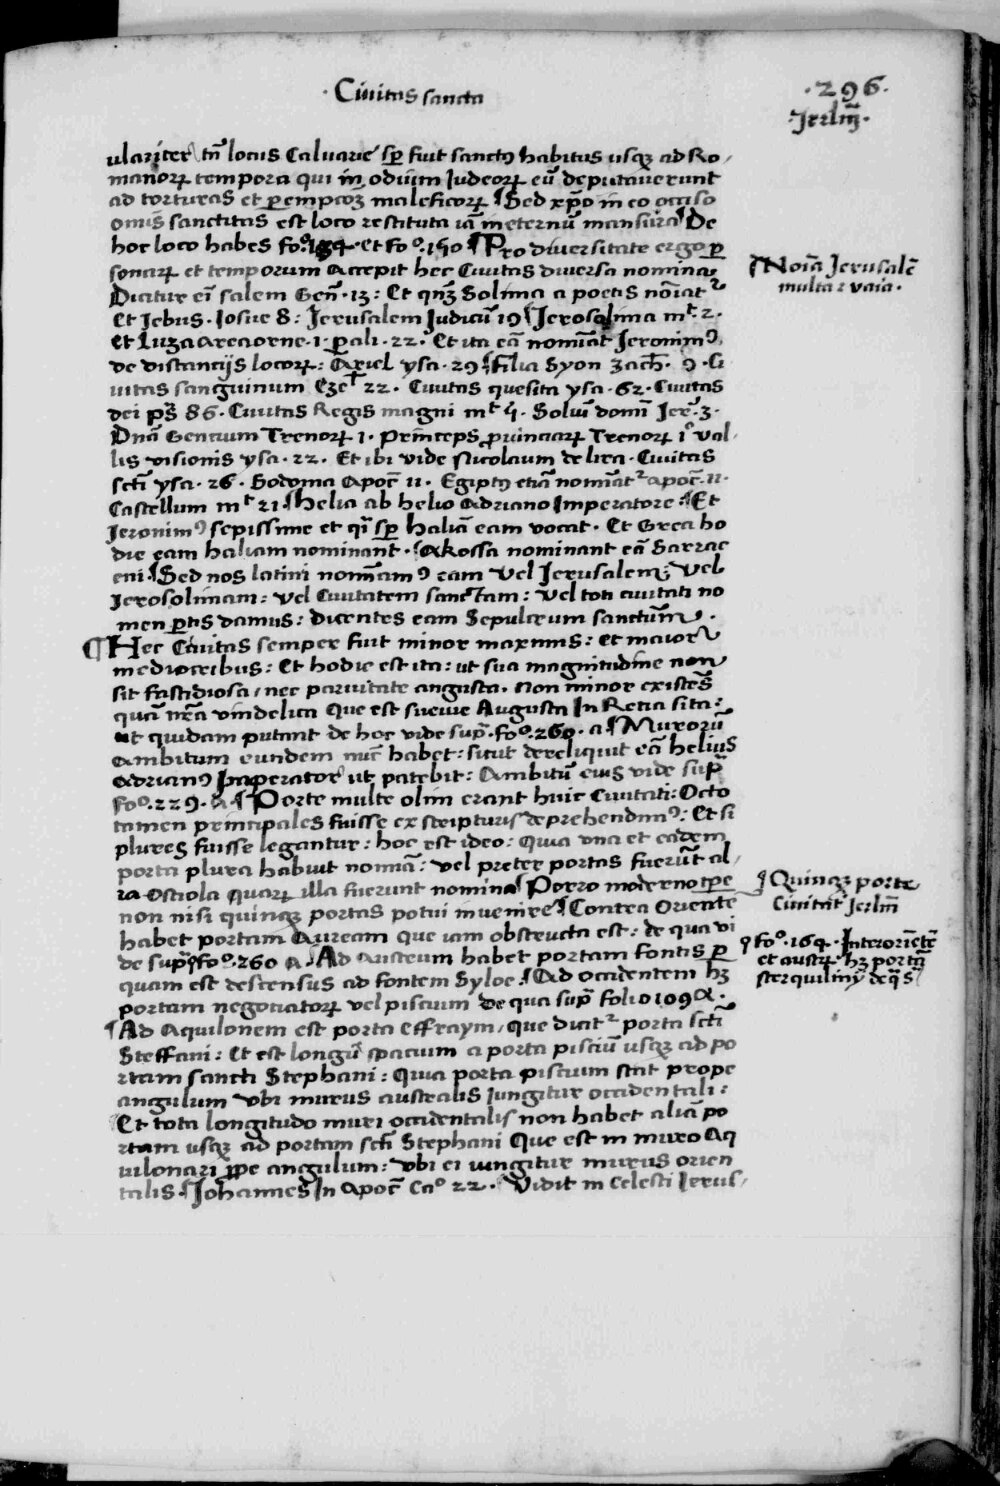 · Ciuitas sancta
·296·
·Jerlm̄·
ulariter tn̄ locus Caluarie sp̄ fuit sanctꝰ habitus usqꝫ ad Ro/
manoꝝ tempora qui in odium Judeoꝝ eū deputauerunt
ad torturas et ꝑempcoꝫ maleficoꝝ ¶Sed xp̄o in eo occiso
omīs sanctitas est loco restituta iā in eternū mansura¶ De
hoc loco habes foº· Et Foº·150 ¶Pro diuersitate ergo ꝑ
sonaꝝ et temporum Accepit hec Ciuitas diuersa nomina
¶Noīa Jerusalē
multa ⁊ vaīa·
Dicitur eī salem Gen̄·13: Et qn̄qꝫ Solima a poetis noīat᷑
Et Jebus· Iosue 8: Jerusalem Judicū 19 ¶Jerosolima mt̄·2·
Et Luza Areaorne·1·ꝑali·22· Et ita eā nomīat Jeronimꝰ
de distancijs locoꝝ: Ariel ysa·29¶Filia Syon Zach̄·9·Ci
uitas sanguinum Eze 22· Ciuitas quesita ysa·62· Ciuitas
dei ps̄ 86· Ciuitas Regis magni mt̄ 5· Soliū domī Jer̄·3·
Dn̄a Gencium Trenoꝝ 1· Princeps ꝓuinciaꝝ Trenoꝝ 1º val·
lis visionis ysa·22· Et ibi vide Nicolaum de lira· Ciuitas
scti ysa·26· Sodoma Apoc̄ 11· Egiptꝰ etiā nomīat᷑ apoc̄·11·
Castellum mt̄ 21·¶Helia ab helio Adriano Imperatore:¶Et
Jeronimꝰ sepissime et qi sp̄ Haliā eam vocat· Et Greci ho
die eam haliam nominant·¶Akossa nominant eā Sarrac
eni·¶Sed nos latini nomīamꝰ eam vel Jerusalem: vel
Jerosolimam: vel Ciuitatem sanctam: vel toti ciuitati no
men ꝑtis damus: dicentes eam Sepulcrum sanctum·
¶Hec Ciuitas semper fuit minor maximis: et maior
mediocribus: Et hodie est ita: ut sua magnitudine non
sit fastidiosa/ nec paruitate angusta· non minor existēs
quā nr̄a vindelica que est sueuie Augusta In Recia sita:
ut quidam putant de hoc vide sup̄·foº·260·a¶Muroꝝ
Ambitum eundem nūc habet: sicut dereliquit eā helius
Adrianꝰ Imperator ut patebit: Ambitū eius vide sup̄
foº·229·A¶Porte multe olim erant huic Ciuitati: Octo
tamen principales fuisse ex scripturis deprehendimꝰ: Et si
plures fuisse legantur: hoc est ideo: Quia una et eadem
porta plura habuit nomīa: vel preter portas fuerūt al/
ia Ostiola quaꝝ illa fuerunt nomina¶Porro moderno tꝑe
¶Quinqꝫ porte
Ciuitat Jerlm̄
non nisi quinqꝫ portas potui inuenire¶Contra Oriente
habet portam Auream que iam obstructa est: de qua vi
¶foº·164·Inter oriētē
et austꝝ·hꝫ portā
sterquilinij de qˢ
de sup̄¶foº·260 A·¶Ad Austrum habet portam fontis ꝑ
quam est descensus ad fontem Syloe·¶Ad occidentem hꝫ
portam negociatoꝝ vel piscium de qua sup̄ folio 109 A·
¶Ad Aquilonem est porta Effraym/ que dicit᷑ porta scti
Steffani: Et est longū spacium a porta pisciū usqꝫ ad po
rtam sancti Stephani: Quia porta piscium stat prope
angulum ubi murus australis Iungitur occidentali:
Et tota longitudo muri occidentalis non habet aliā po
rtam usqꝫ ad portam scti Stephani Que est in muro Aq
uilonari ꝓpe angulum: ubi ei iungitur murus orien
talis·¶Johannes In Apoc̄ Caº 22· Vidit in celesti Jerus/